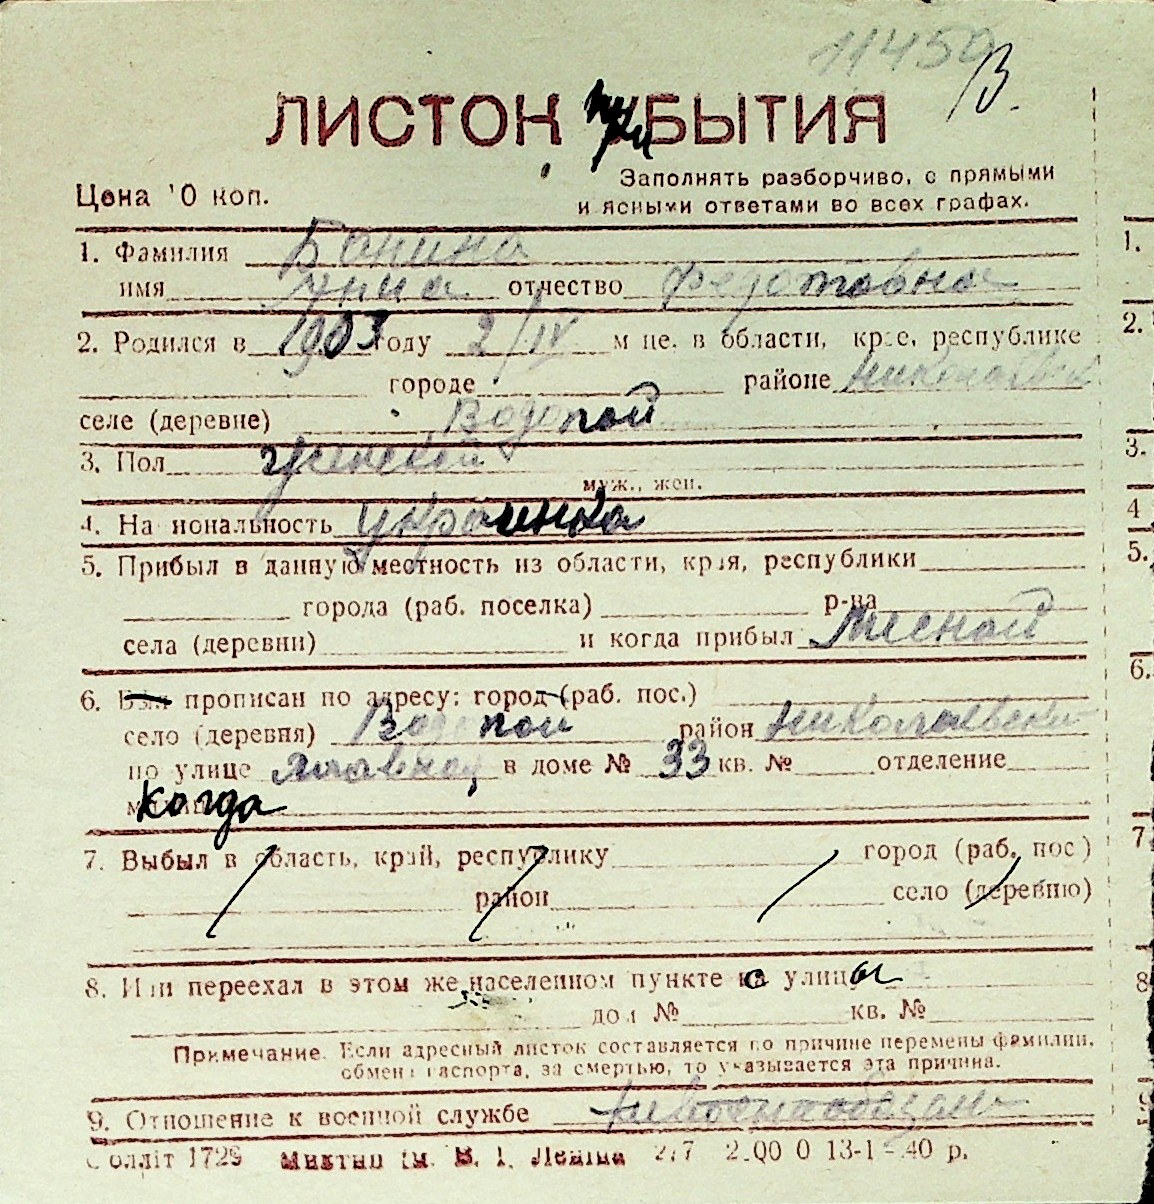 11450
В.
ЛИСТОК при БЫТИЯ
Цена 10 коп.
Заполнять разборчиво, с прямыми
и ясными ответами во всех графах.
1. Фамилия Бонина
имя отчество Федотовна
2. Родился в 1903 году 2/IV м-це. в области, крае, республике
городе районе Николаевск
селе (деревне) Водопой
3. Пол женский
муж., жен.
4. Национальность украинка
5. Прибыл в данную местность из области, края, республики
города (раб. поселка) р-на
села (деревни) и когда прибыл местной
6. Был прописан по адресу: город (раб. пос.)
село (деревня) Водопой район Николаевский
по улице Главной в доме № 33 кв. № отделение
когда
7. Выбыл в область, край, республику город (раб. пос.)
район село (деревню)
8. Или переехал в этом же населенном пункте с улицы
дом № кв. №
Примечание. Если адресный листок составляется по причине перемены фамилии,
обмена паспорта, за смертью, то указывается эта причина.
9. Отношение к военной службе невоеннообязан
Облліт 1729 им. В. І. Леніна 13-1-40 р.
1.
2.
3.
4
5.
6.
7
8
9